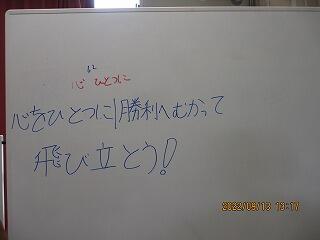 心 ひとつに
心をひとつに|勝利へむかって
飛び立とう!
2022/08/13 13:17